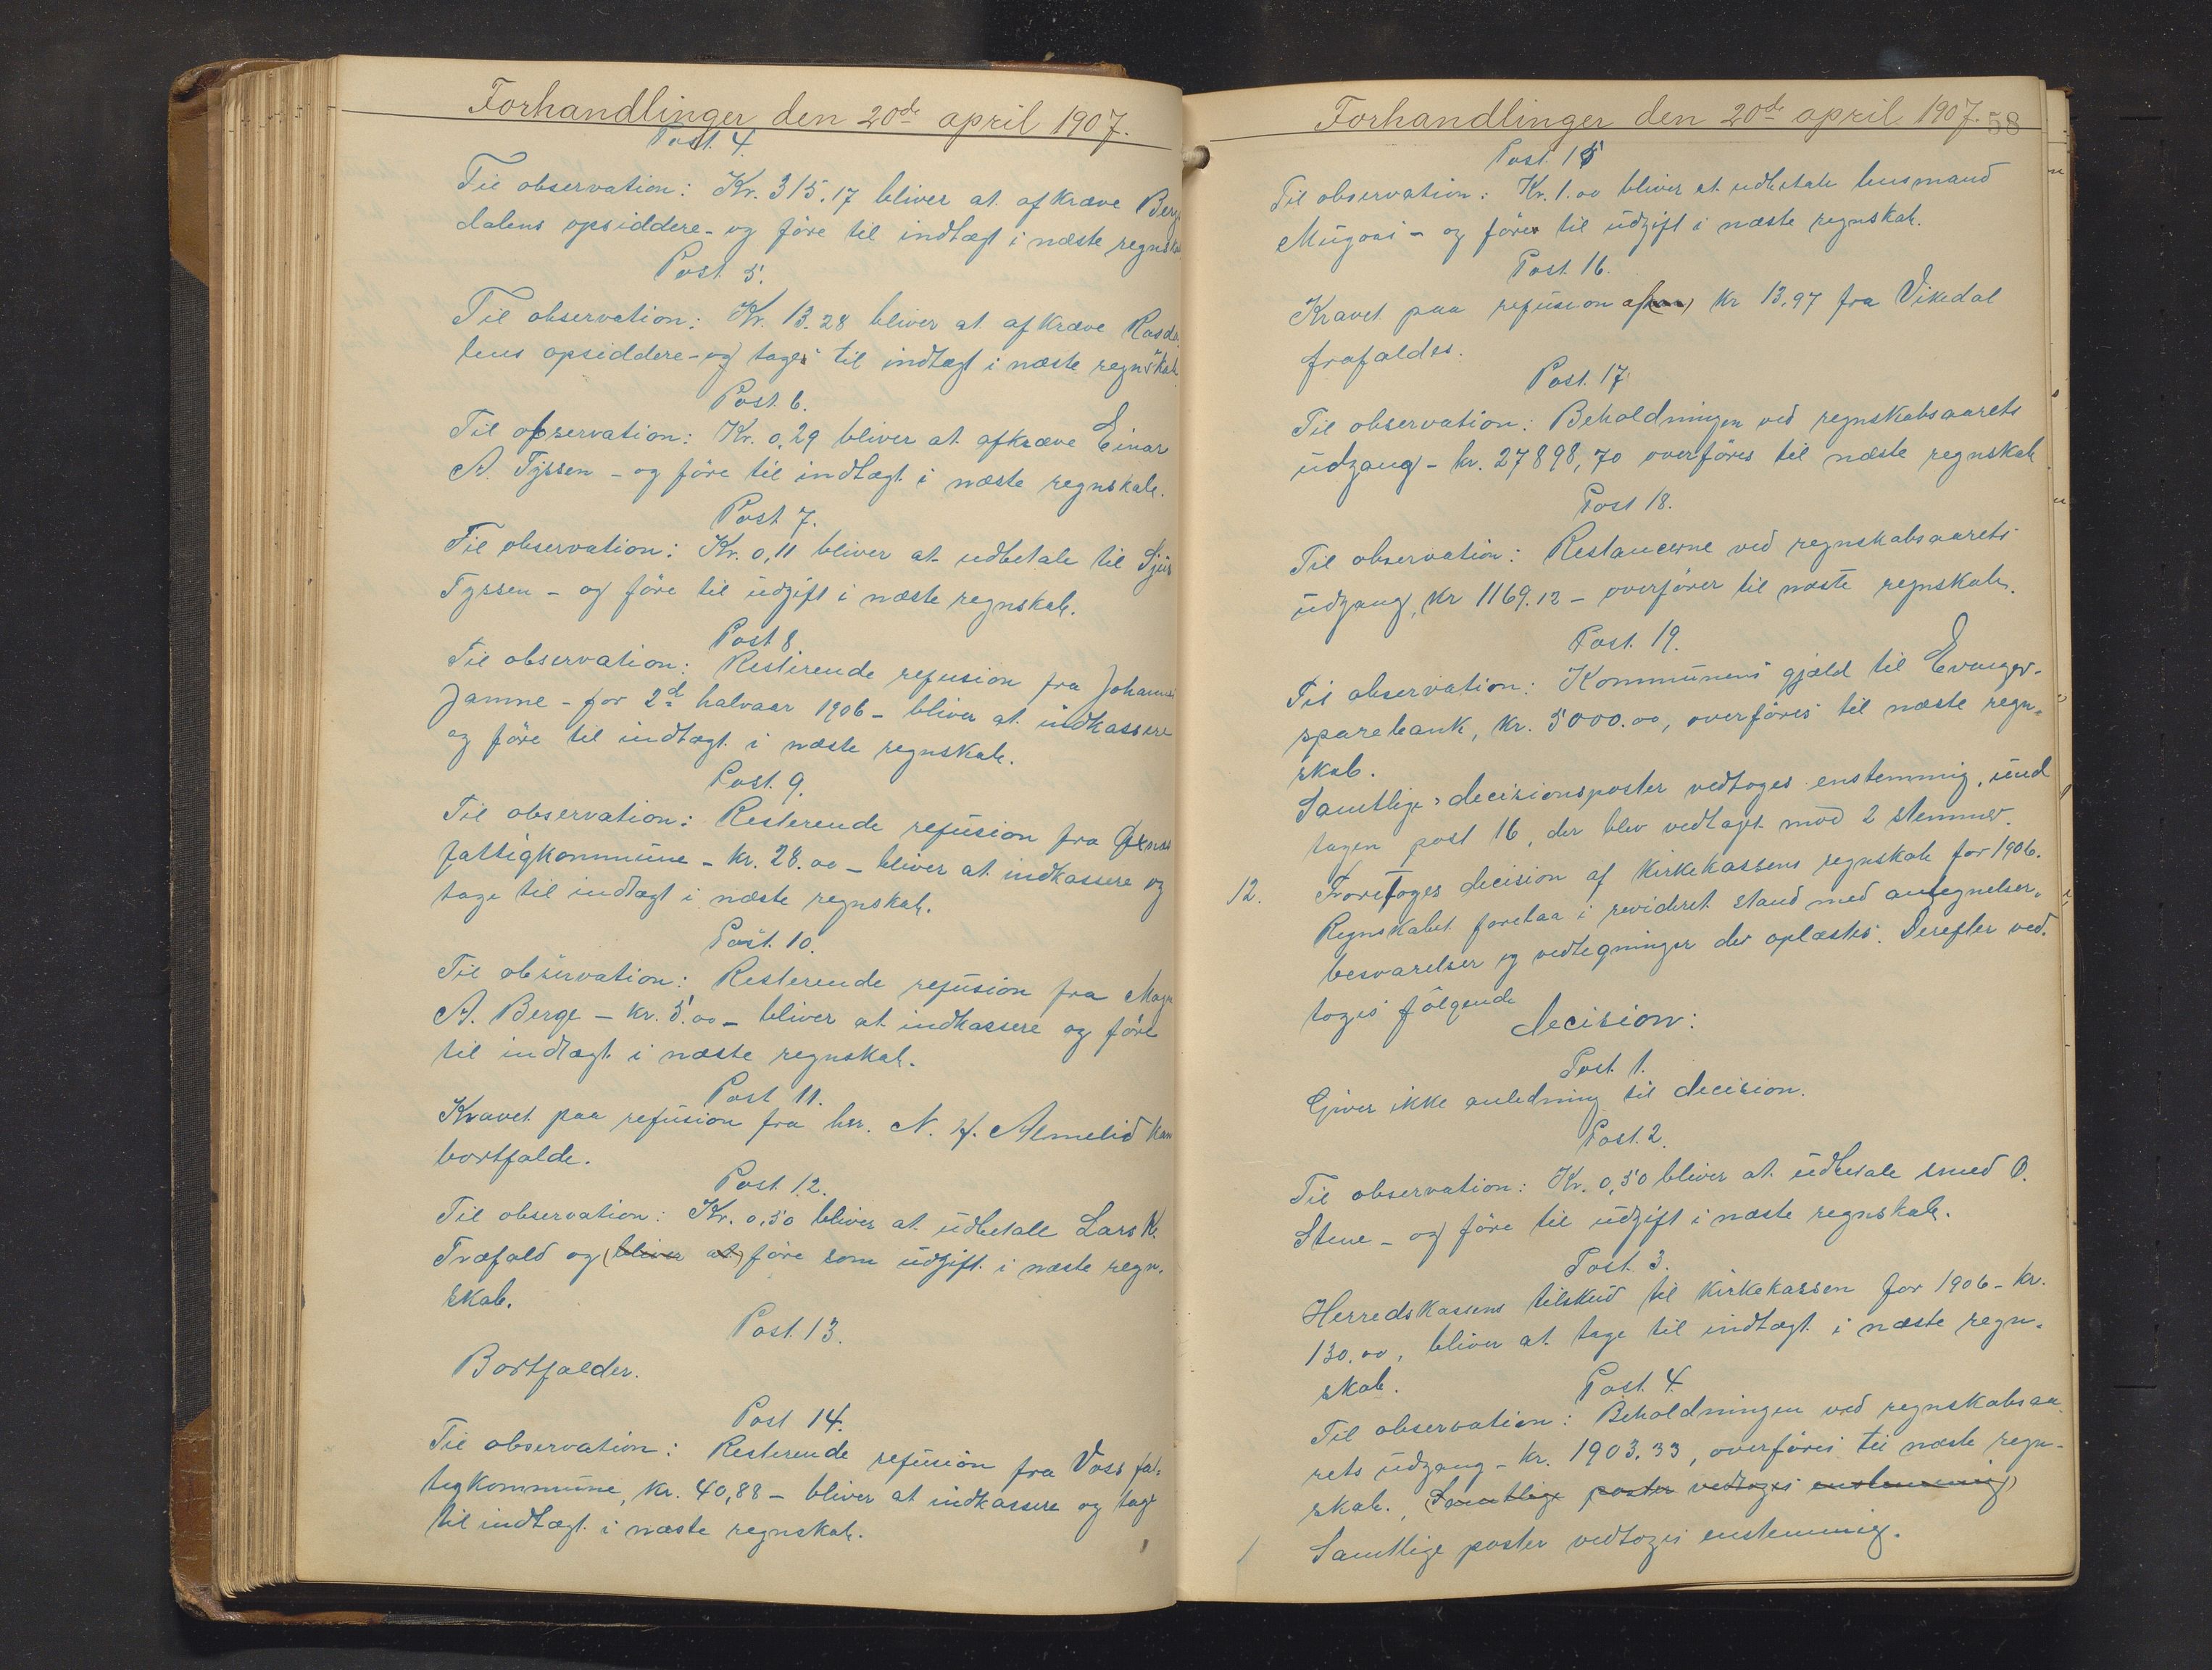 Forhandlinger den 20de april 1907.
Post. 4.
Til observation: Kr. 315.17 bliver at afkræve Berg
dalens opsiddere - og före til indtægt i næste regnskab
Post 5.
Til observation: Kr. 13.28 bliver at afkræve Rasda
lens opsiddere - og tages til indtægt i næste regnskab
Post 6.
Til observation: Kr. 0,29 bliver at afkræve Einar
A. Tyssen - og före til indtægt i næste regnskab.
Post 7.
Til observation: Kr. 0,11 bliver at udbetale til Sjur
Tyssen - og före til udgift i næste regnskab.
Post 8
Til observation: Restirende refusion fra Johannes
Jamne - for 2d halvaar 1906 - bliver at indkassere
og före til indtægt i næste regnskab.
Post. 9.
Til observation: Resterende refusion fra
fattigkommune - kr. 28.00 - bliver at indkassere og
tage til indtægt i næste regnskab.
Post. 10.
Til observation: Resterende refusion fra Magn
A. Berge - kr. 5.00 - bliver at indkassere og före
til indtægt i næste regnskab.
Post 11.
Kravet paa refusion fra hr. N. H. Almelid kan
bortfalde.
Post 12.
Til observation: Kr. 0.50 bliver at udbetale Lars K.
Træfald og (bliver at) före som udgift i næste regn-
skab.
Post. 13.
Bortfalder.
Post 14.
Til observation: Resterende refusion fra Voss fat-
tigkommune, kr. 40,88 - bliver at indkassere og tage
til indtægt i næste regnskab.
Forhandlinger den 20de april 1907. 58
Post. 15
Til observation: Kr. 1.00 bliver at udbetale husmand
Mugaas - og före til udgift i næste regnskab.
Post. 16.
Kravet paa refusion af kr 13.97 fra Vikedal
frafaldes.
Post. 17
Til observation: Beholdningen ved regnskabsaarets
udgang - kr. 27898,70 overföres til næste regnskab
Post 18.
Til observation: Restancerne ved regnskabsaarets
udgang, kr 1169.12 - overförer til næste regnskab.
Post. 19.
Til observation: Kommunens gjæld til Evanger-
sparebank, kr. 5000.00, overföres til næste regn-
skab.
Samtlige decisionsposter vedtoges enstemmig, und
tagen post 16, der blev vedtaget mod 2 stemmer.
12. Foretoges decision af kirkekassens regnskab for 1906.
Regnskabet forelaa i revideret stand med antegnelser,
besvarelser og vedtegninger der oplæstes. Derefter ved-
toges fölgende
decision:
Post. 1.
Giver ikke anledning til decision.
Post. 2.
Til observation: Kr. 0,50 bliver at udbetale smed O.
Stene - og före til udgift i næste regnskab.
Post. 3.
Herredskassens tilskud til kirkekassen for 1906 - kr.
130.00, bliver at tage til indtægt i næste regn-
skab.
Post. 4
Til observation: Beholdningen ved regnskabsaa-
rets udgang - kr. 1903.33, overföres til næste regn-
skab. (Samtlige poster vedtoges enstemmig)
Samtlige poster vedtoges enstemmig.